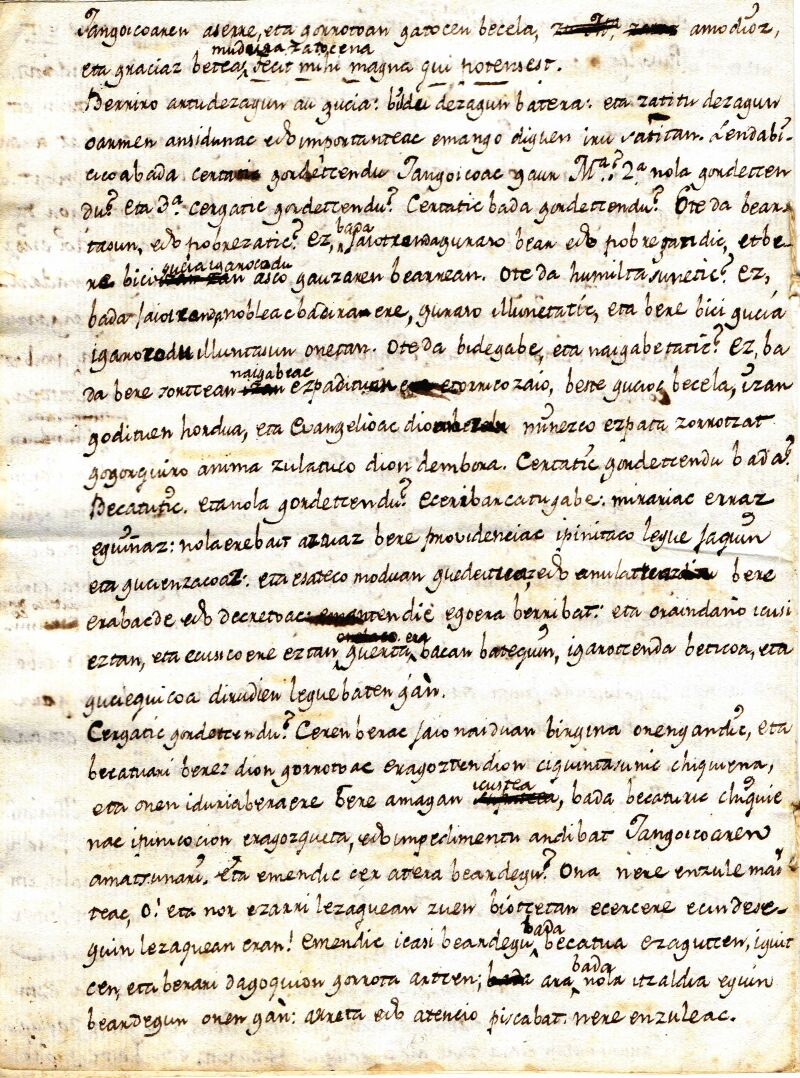 Jangoicoaren aserre, eta gorrotoan gatocen becela, amodioz,
mudaiga zatocena
eta graciaz beteaz fecit mihi magna qui potens est.
Berriro artu dezagun au gucia: bildu dezagun batera: eta zatitu dezagun
oarmen ansidunac edo importanteac emango diguen iru zatitan. Lendabi-
cico abada certatic gordetcendu Jangoicoac gaur M.ª? 2.ª nola gordetcen
du? Eta 3.ª Cergatic gordetcendu? Certatic bada gordetcendu? Ote da bear-
tasun, edo pobrezatic? Ez, bada Jaiotcendaguraso bear edo pobregatidic, et be-
gucia igarocodu
re bici asco gauzaren bearrean. Ote da humiltasunetic? Ez,
bada Jaiotcenda nobleac badira ere, guraso illunetatic, eta bere bici gucia
igarotcodu illuntasun onetan. Ote da bidegabe, eta naigabetatic? Ez, ba
naigabeac
da bere sortcean ezpadituen etorricozaio, beste gucioc becela, izan
godituen hordua, eta Evangelioac dion nunezco ezpata zorrotzat
gogorguiro anima zulatuco dion dembora. Certatic gordetcendu bada?
Becatutic. eta nola gordetcendu? Eceri barcatugabe: mirariac erraz
eguinaz: nola erebait arauaz bere providenciac ipinitaco legue Jaquin
eta gucienzacoaz: eta esateco moduan guedeitceaz edo anulatceaz bere
erabacde edo decretoac: tendic egoera berri bat: eta oraindaño icusi
eztan, eta ecusico ere eztan guerta bacan batequin, igarotcenda beticoa, eta
guciequicoa dirudien legue baten gañ.
Cergatic gordetcendu? Ceren berac Jaio nai duan birgina onengandic, eta
becatuari berez dion gorrotoac eragoztendion ciquintasunic chiquiena,
icustea
eta onen iduria bera ere bere amagan, bada becaturic chiquie
nac ipinicocion eragozqueta, edo impedimentu andi bat Jangoicoaren
amatsunari. Eta emendic cer atera beardegu? Ona nere enzule mai
teac, O! eta nor ezarri lezaquean zuen biotcetan ecercere ecindese-
quin lezaquean eran! Emendic icasi beardegu bada becatua ezagutcen, iguit
cen, eta berari dagoquion gorrota artcen; ara bada nola itzaldia eguin
beardegun onen gañ: arreta edo atencio piscabat. nere enzuleac.